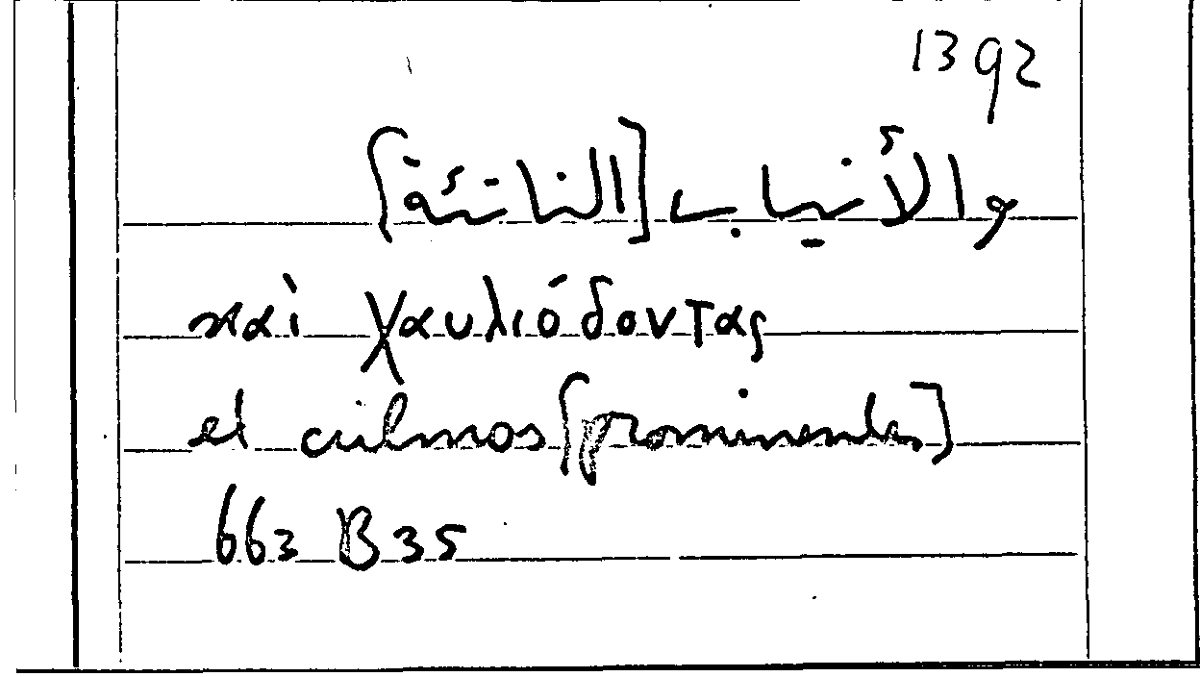 1392
والأنياب [الناتئة]
καὶ χαυλιόδοντας
et culmos [prominentes]
663 B 35